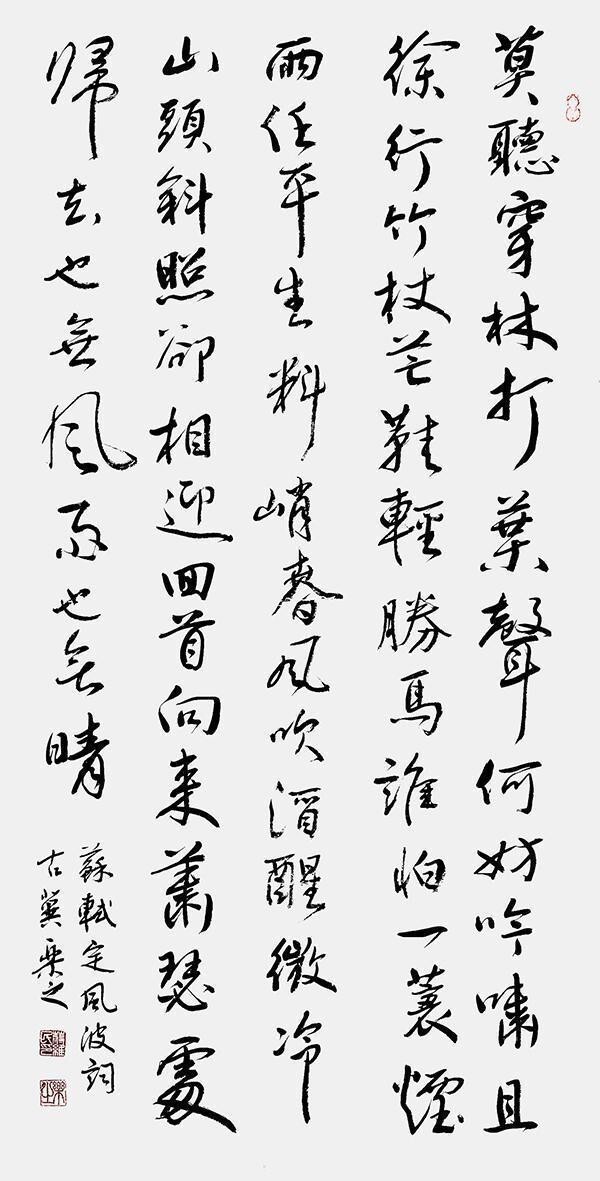 莫聽穿林打葉聲何妨吟嘯且
徐行竹杖芒鞋輕勝馬誰怕一蓑煙
雨任平生料峭春風吹酒醒微冷
山頭斜照卻相迎回首向来蕭瑟處
歸去也無風雨也無晴
蘇軾定風波詞
古冀之